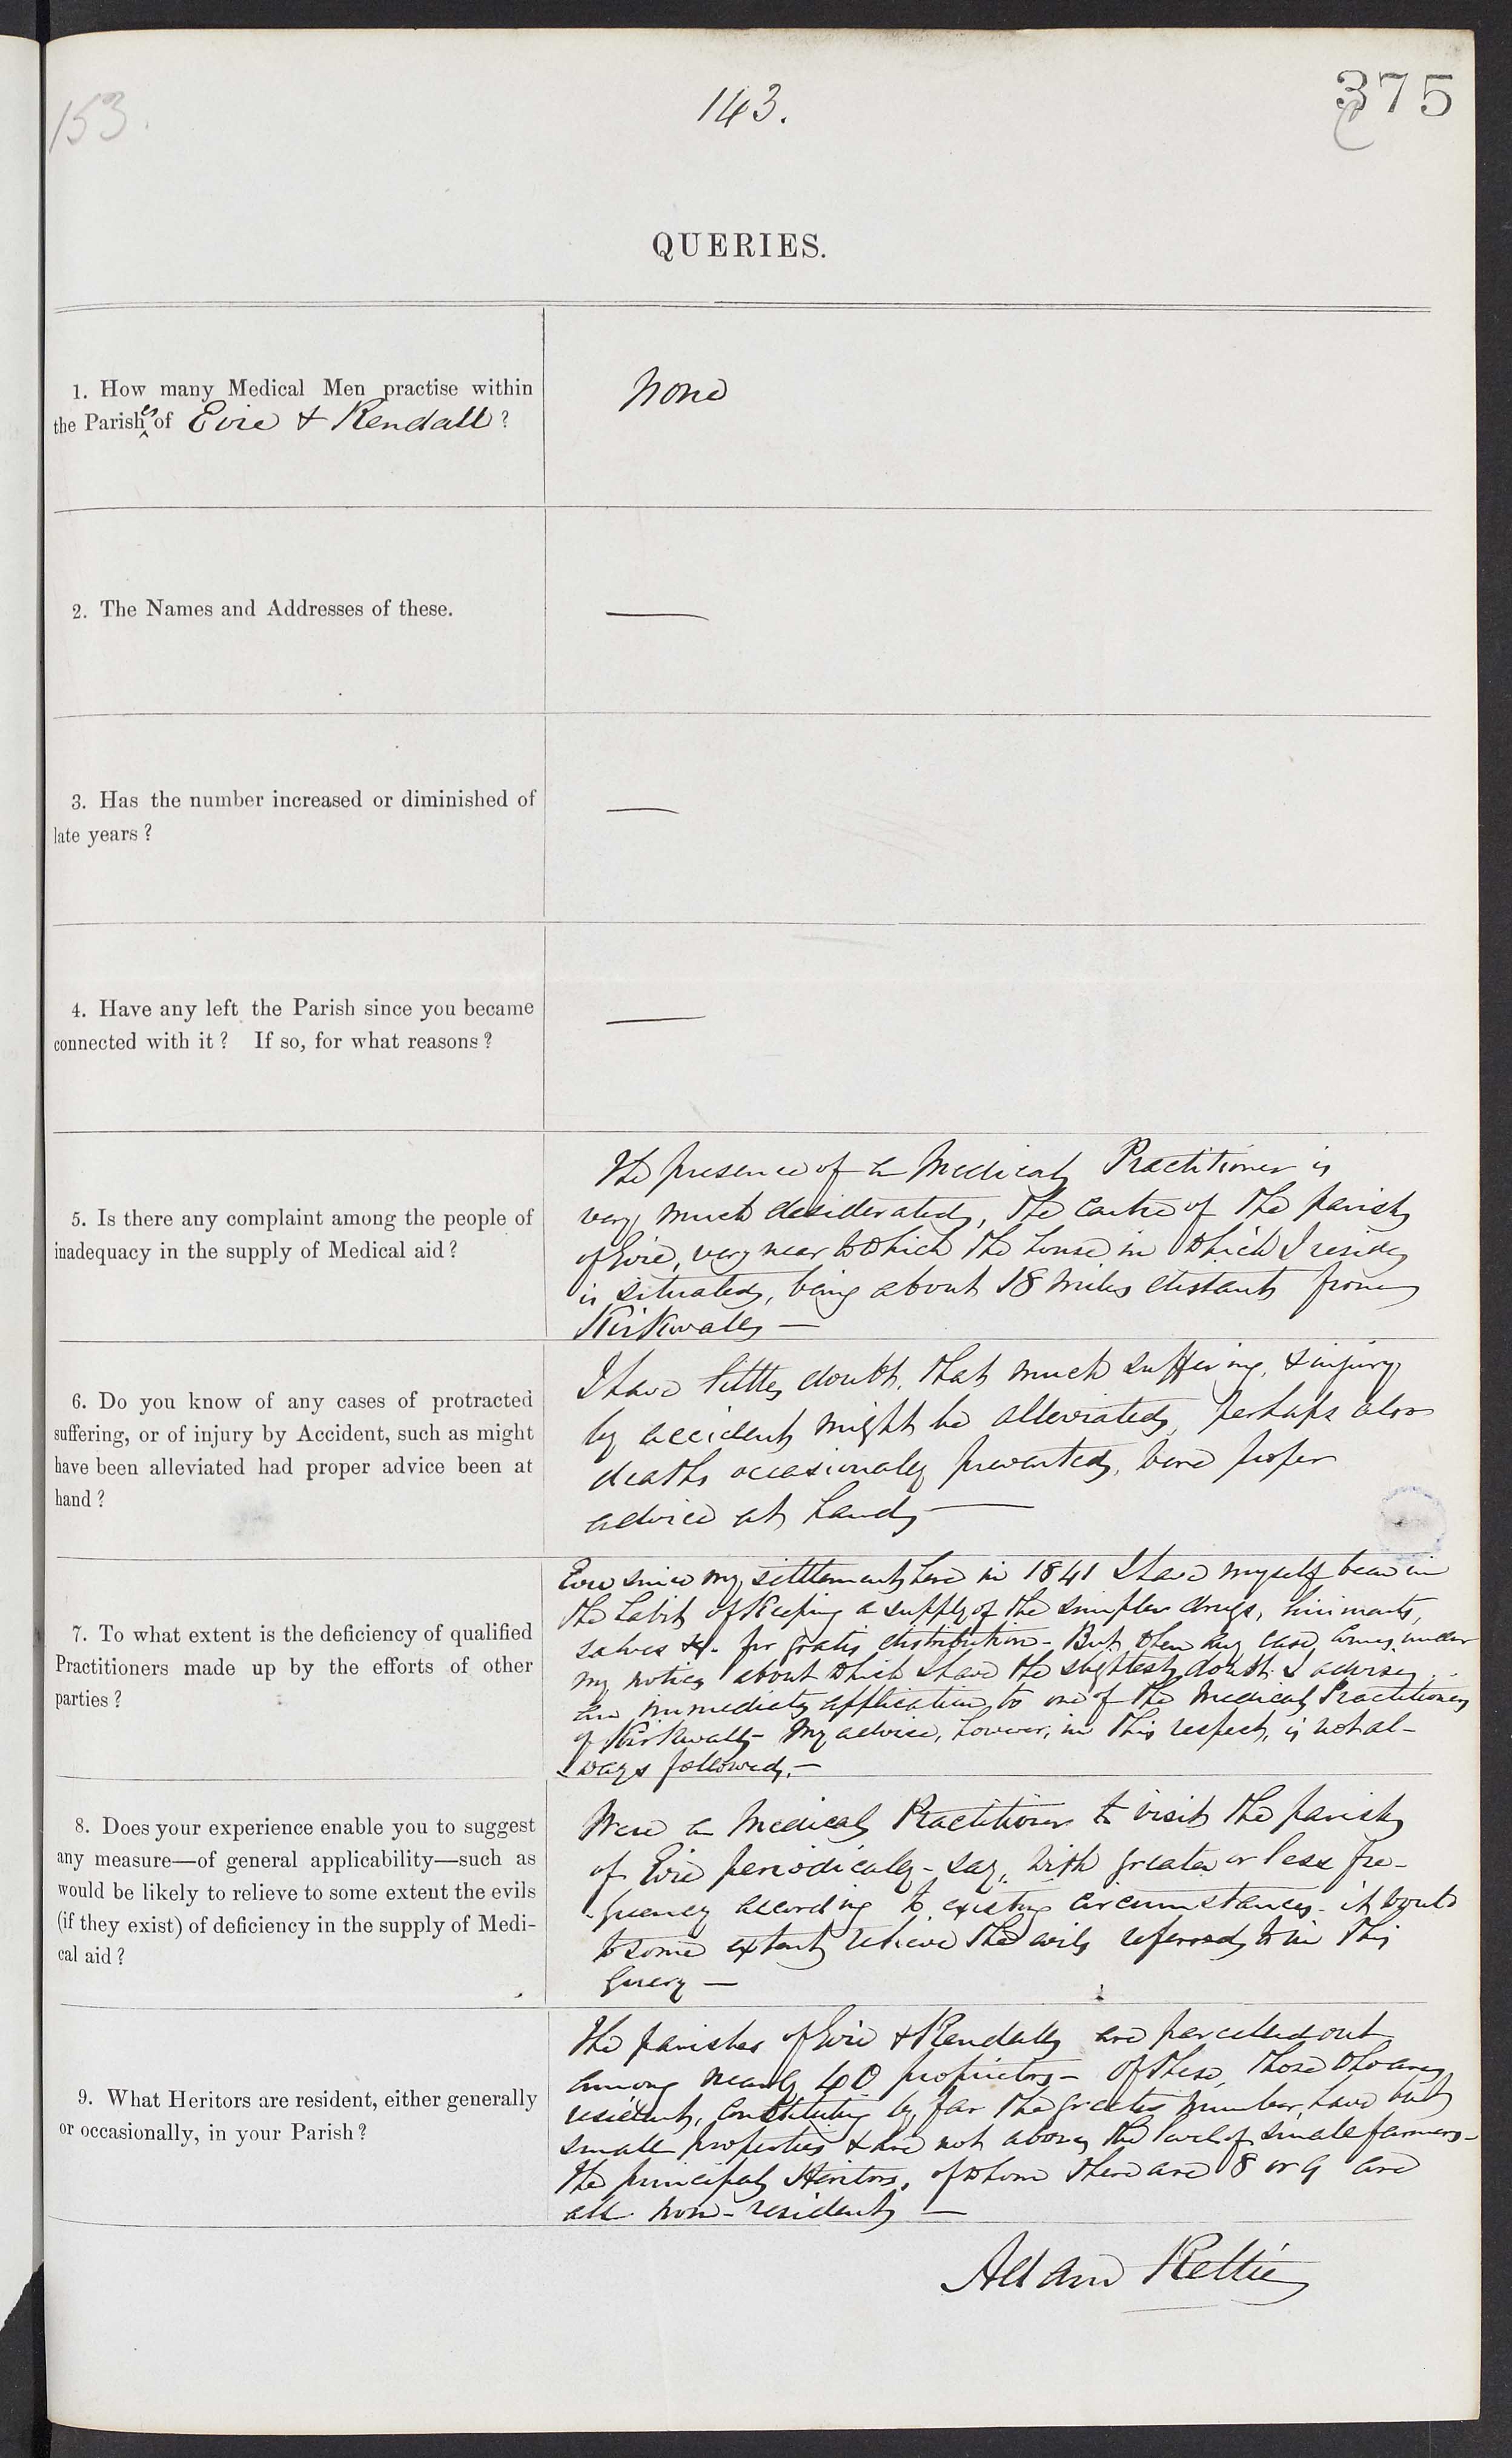 153.
143.
375
QUERIES.
1. How many Medical Men practise within
the Parish^es of Evie & Rendall ?
None
2. The Names and Addresses of these.
—
3. Has the number increased or diminished of
late years ?
—
4. Have any left the Parish since you became
connected with it ? If so, for what reasons ?
—
5. Is there any complaint among the people of
inadequacy in the supply of Medical aid ?
The presence of a Medical Practitioner is
very much desiderated, the centre of the parish
of Evie, very near to which the house in which I reside
is situated, being about 18 miles distant from
Kirkwall —
6. Do you know of any cases of protracted
suffering, or of injury by Accident, such as might
have been alleviated had proper advice been at
hand ?
I have little doubt, that much suffering, & injury
by accident might be alleviated, perhaps also
deaths occasionally prevented, were proper
advice at hand —
7. To what extent is the deficiency of qualified
Practitioners made up by the efforts of other
parties ?
Ever since my settlement here in 1841 I have myself been in
the habit of keeping a supply of the simpler drugs, liniments,
salves &c. for gratis distribution - But when any case comes under
my notice about which I have the slightest doubt I advise
an immediate application to one of the Medical Practitioners
of Kirkwall - My advice, however, in this respect, is not al-
ways followed. —
8. Does your experience enable you to suggest
any measure—of general applicability—such as
would be likely to relieve to some extent the evils
(if they exist) of deficiency in the supply of Medi-
cal aid ?
Were a Medical Practitioner to visit the parish
of Evie periodically - say, with greater or less fre-
quency according to existing circumstances - it would
to some extent relieve the evils referred to in this
query —
9. What Heritors are resident, either generally
or occasionally, in your Parish ?
The parishes of Evie & Rendall are parcelled out
among nearly 40 proprietors - Of these, those who are
resident, constituting by far the greater number, have but
small properties & are not above the level of small farmers -
The principal Heritors, of whom there are 8 or 9 are
all non-resident —
Adam Rettie